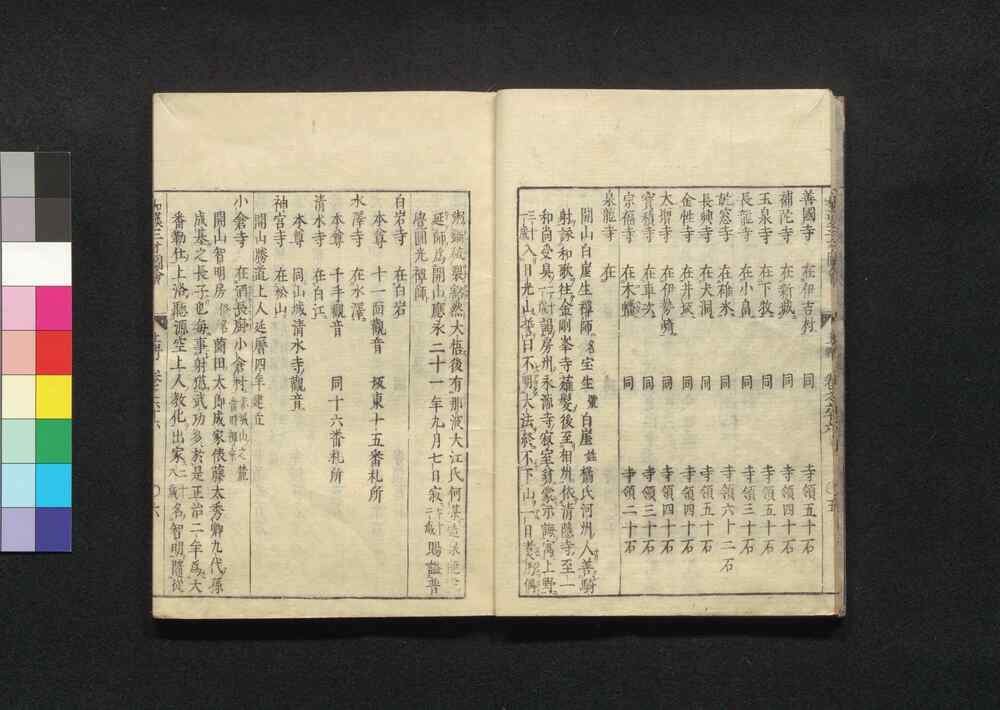 善國寺 在伊吉村 同 寺領五十石
補陀寺 在新城 同 寺領四十石
玉泉寺 在下牧 同 寺領五十石
長龍寺 在小島 同 寺領三十石
在碓氷 同 寺領六十二石
長興寺 在大洞 同 寺領五十石
金性寺 在井 同 寺領四十石
寳積寺 在 同 寺領三十石
大聖寺 在伊勢 同 寺領四十石
宗福寺 在木 同 寺領二十石
泉龍寺 在
開山白崖生禪師名宝生號白崖姓橘氏河州人善騎
射詠和歌往金剛峯寺薙髮後至相州依清隱寺至一
和尚受具行謁房州永源寺寂室翁蒙示誨寓上野
三十歳入日光山誓曰不明大法終不下山一日煮粥偶
粥鍋破裂豁然大悟後有那波大江氏何某造泉龍寺
延師爲開山應永二十一年九月七日寂七十二歳賜謚普
覺圓光禪師
白岩寺 在白岩
本尊 十一面觀音 坂東十五番札所
水澤寺 在水澤
本尊 千手觀音 同十六番札所
清水寺 在白江
本尊 同山城清水寺觀音
神宮寺 在松山
開山勝道上人延曆四年建立
小倉寺 在酒長厨小倉村
開山智明房俗名薗田太郎成家俵藤太秀郷九代孫
成基之長子也毎事射獵武功多於是正治二年爲大
番勤仕上洛聽源空上人教化出家二十八歳名智明隨從